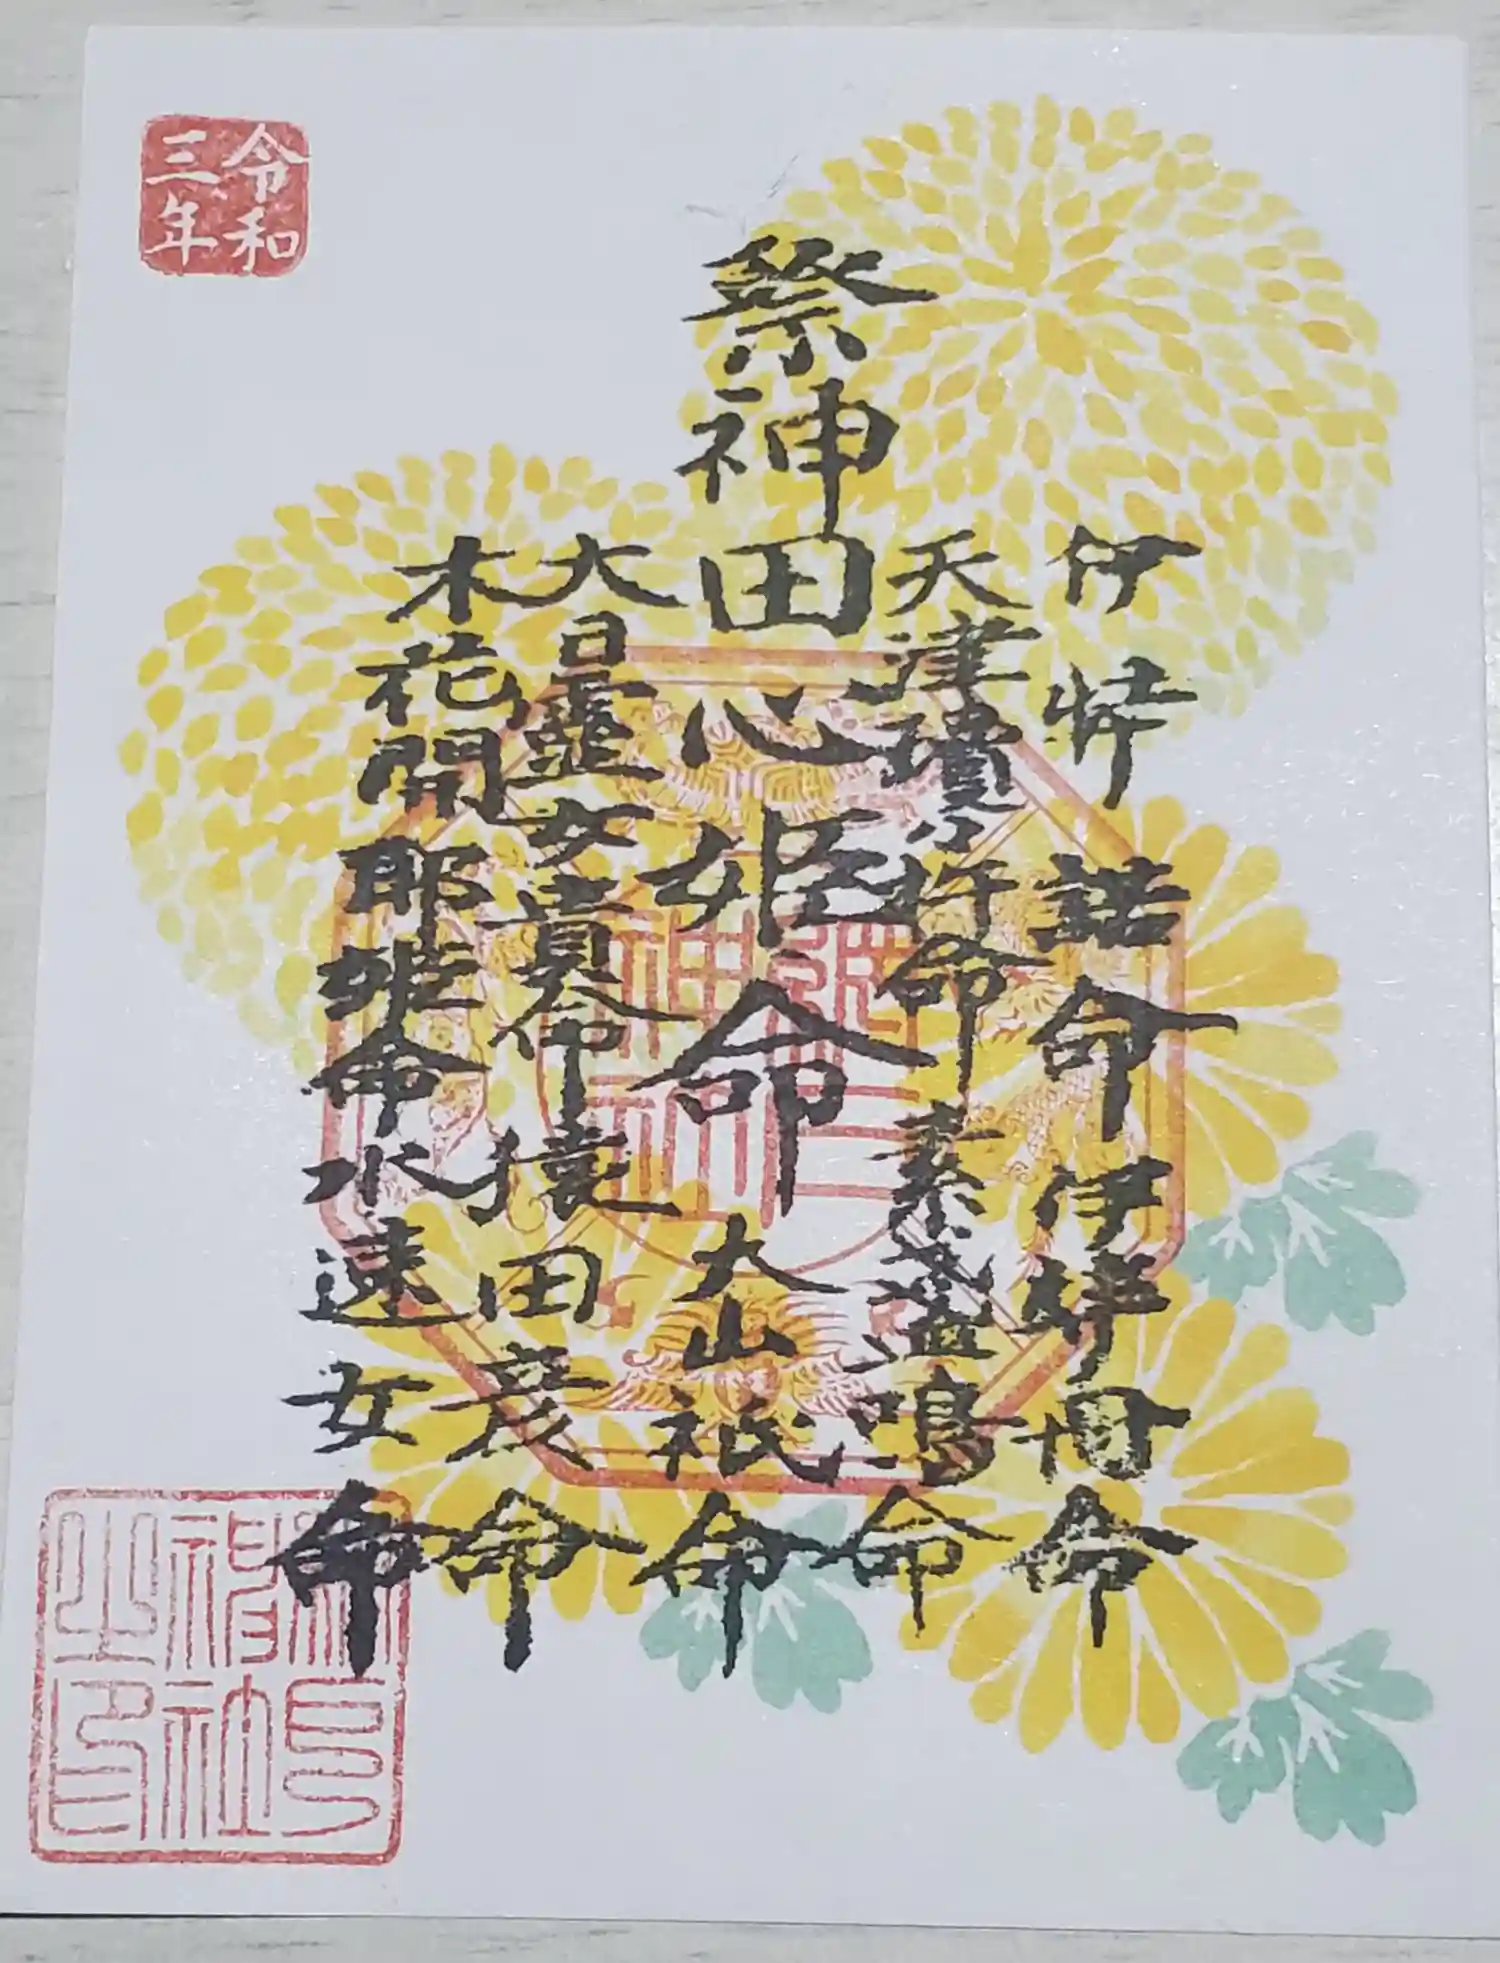 令和
三年
祭神
伊弉諾命 伊弉冊命
天津瓊々杵命 素盞嗚命
田心姫命 大山祇命
大日孁女貴命 猿田彦命
木花開耶姫命 水速女命